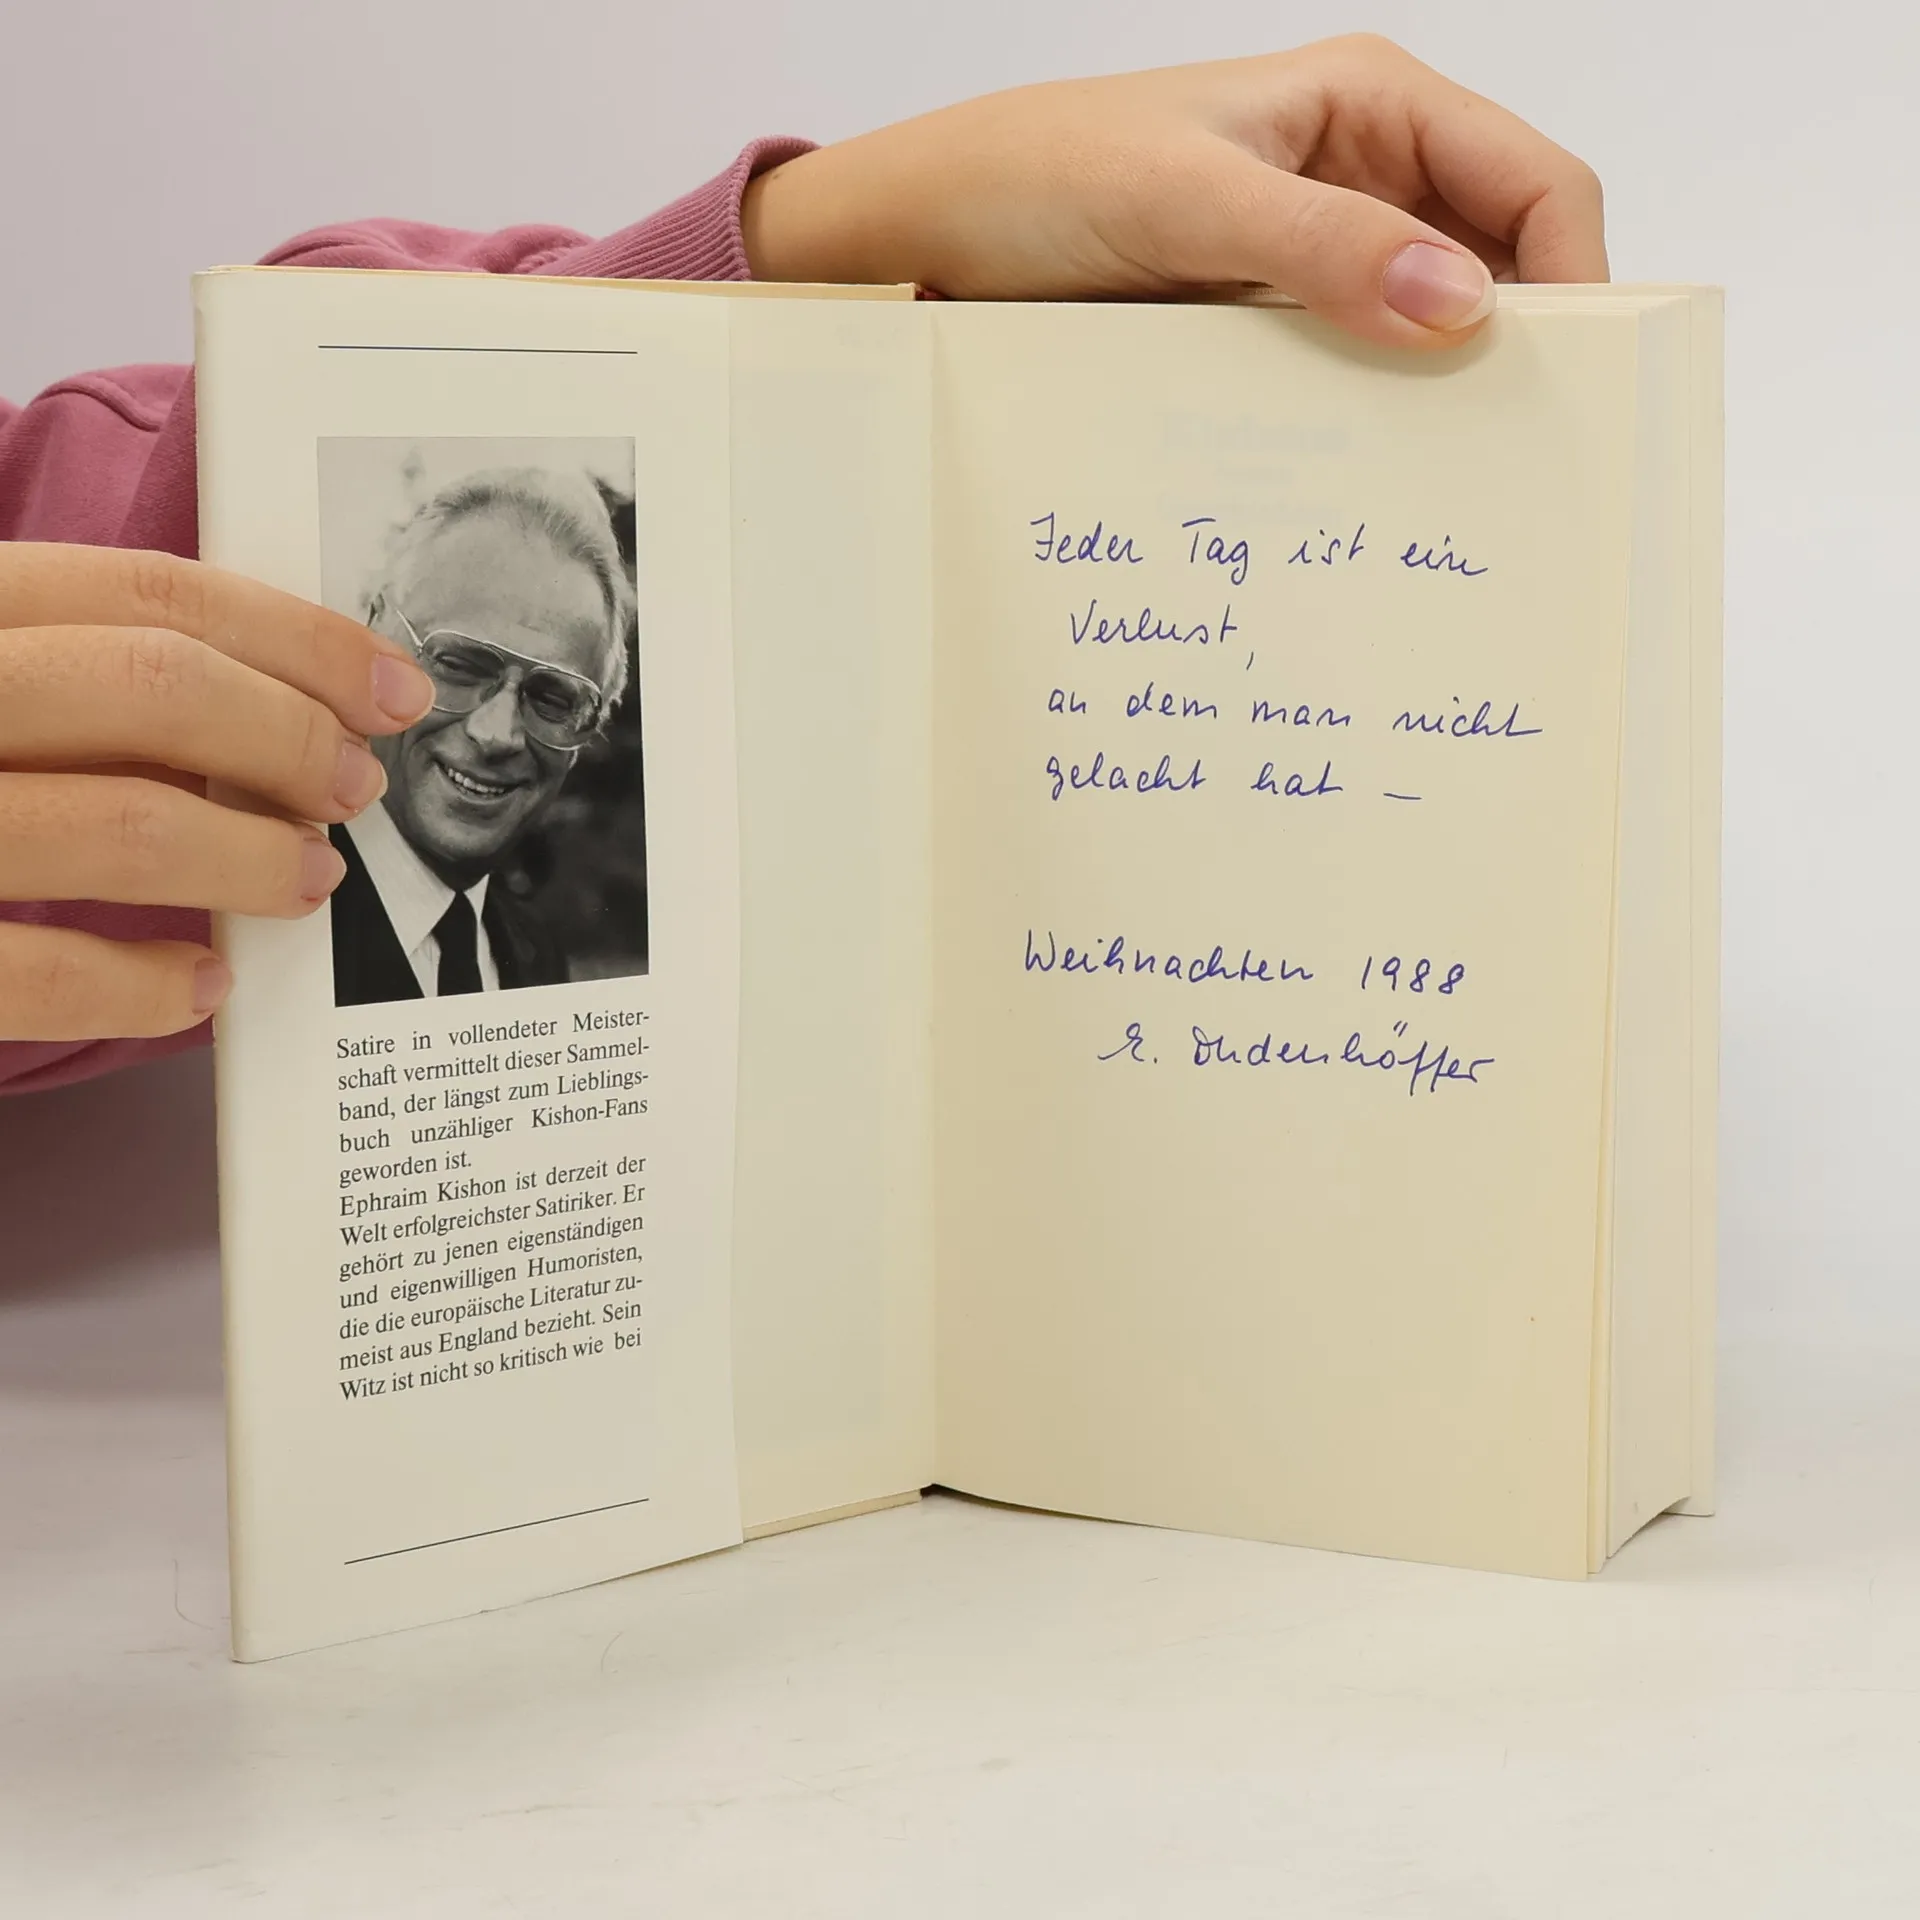 Satire in vollendeter Meister-
schaft vermittelt dieser Sammel-
band, der längst zum Lieblings-
buch unzähliger Kishon-Fans
geworden ist.
Ephraim Kishon ist derzeit der
Welt erfolgreichster Satiriker. Er
gehört zu jenen eigenständigen
und eigenwilligen Humoristen,
die die europäische Literatur zu-
meist aus England bezieht. Sein
Witz ist nicht so kritisch wie bei
Jeder Tag ist ein
Verlust,
an dem man nicht
gelacht hat –
Weihnachten 1988
E. Dudenhöffer